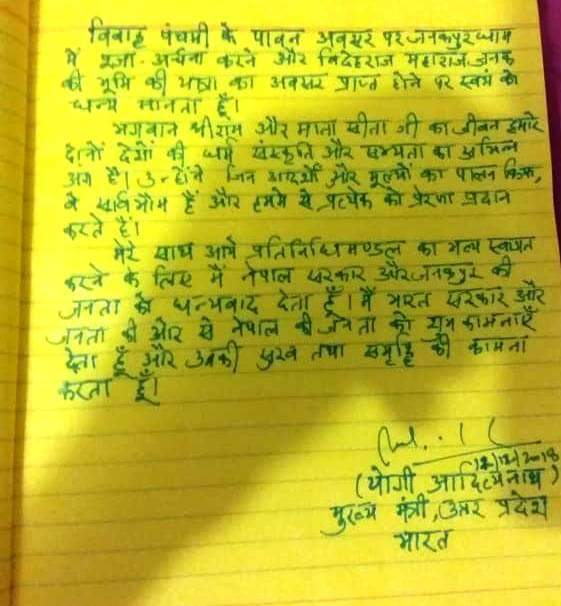 विवाह पंचमी के पावन अवसर पर जनकपुरधाम
में पूजा-अर्चना करने और विदेहराज महाराज जनक
की भूमि की यात्रा का अवसर प्राप्त होने पर स्वयं को
धन्य मानता हूँ।
भगवान श्रीराम और माता सीता जी का जीवन हमारे
दोनों देशों की धर्म संस्कृति और सभ्यता का अभिन्न
अंग है। उन्होंने जिन आदर्शों और मूल्यों का पालन किया,
वे सार्वभौम हैं और हममे से प्रत्येक को प्रेरणा प्रदान
करते हैं।
मेरे साथ आये प्रतिनिधिमण्डल का भव्य स्वागत
करने के लिए मैं नेपाल सरकार और जनकपुर की
जनता को धन्यवाद देता हूँ। मैं भारत सरकार और
जनता की ओर से नेपाल की जनता को शुभ कामनाएँ
देता हूँ और उनकी सुख तथा समृद्धि की कामना
करता हूँ।
12/12/2018
(योगी आदित्यनाथ)
मुख्य मंत्री, उत्तर प्रदेश
भारत